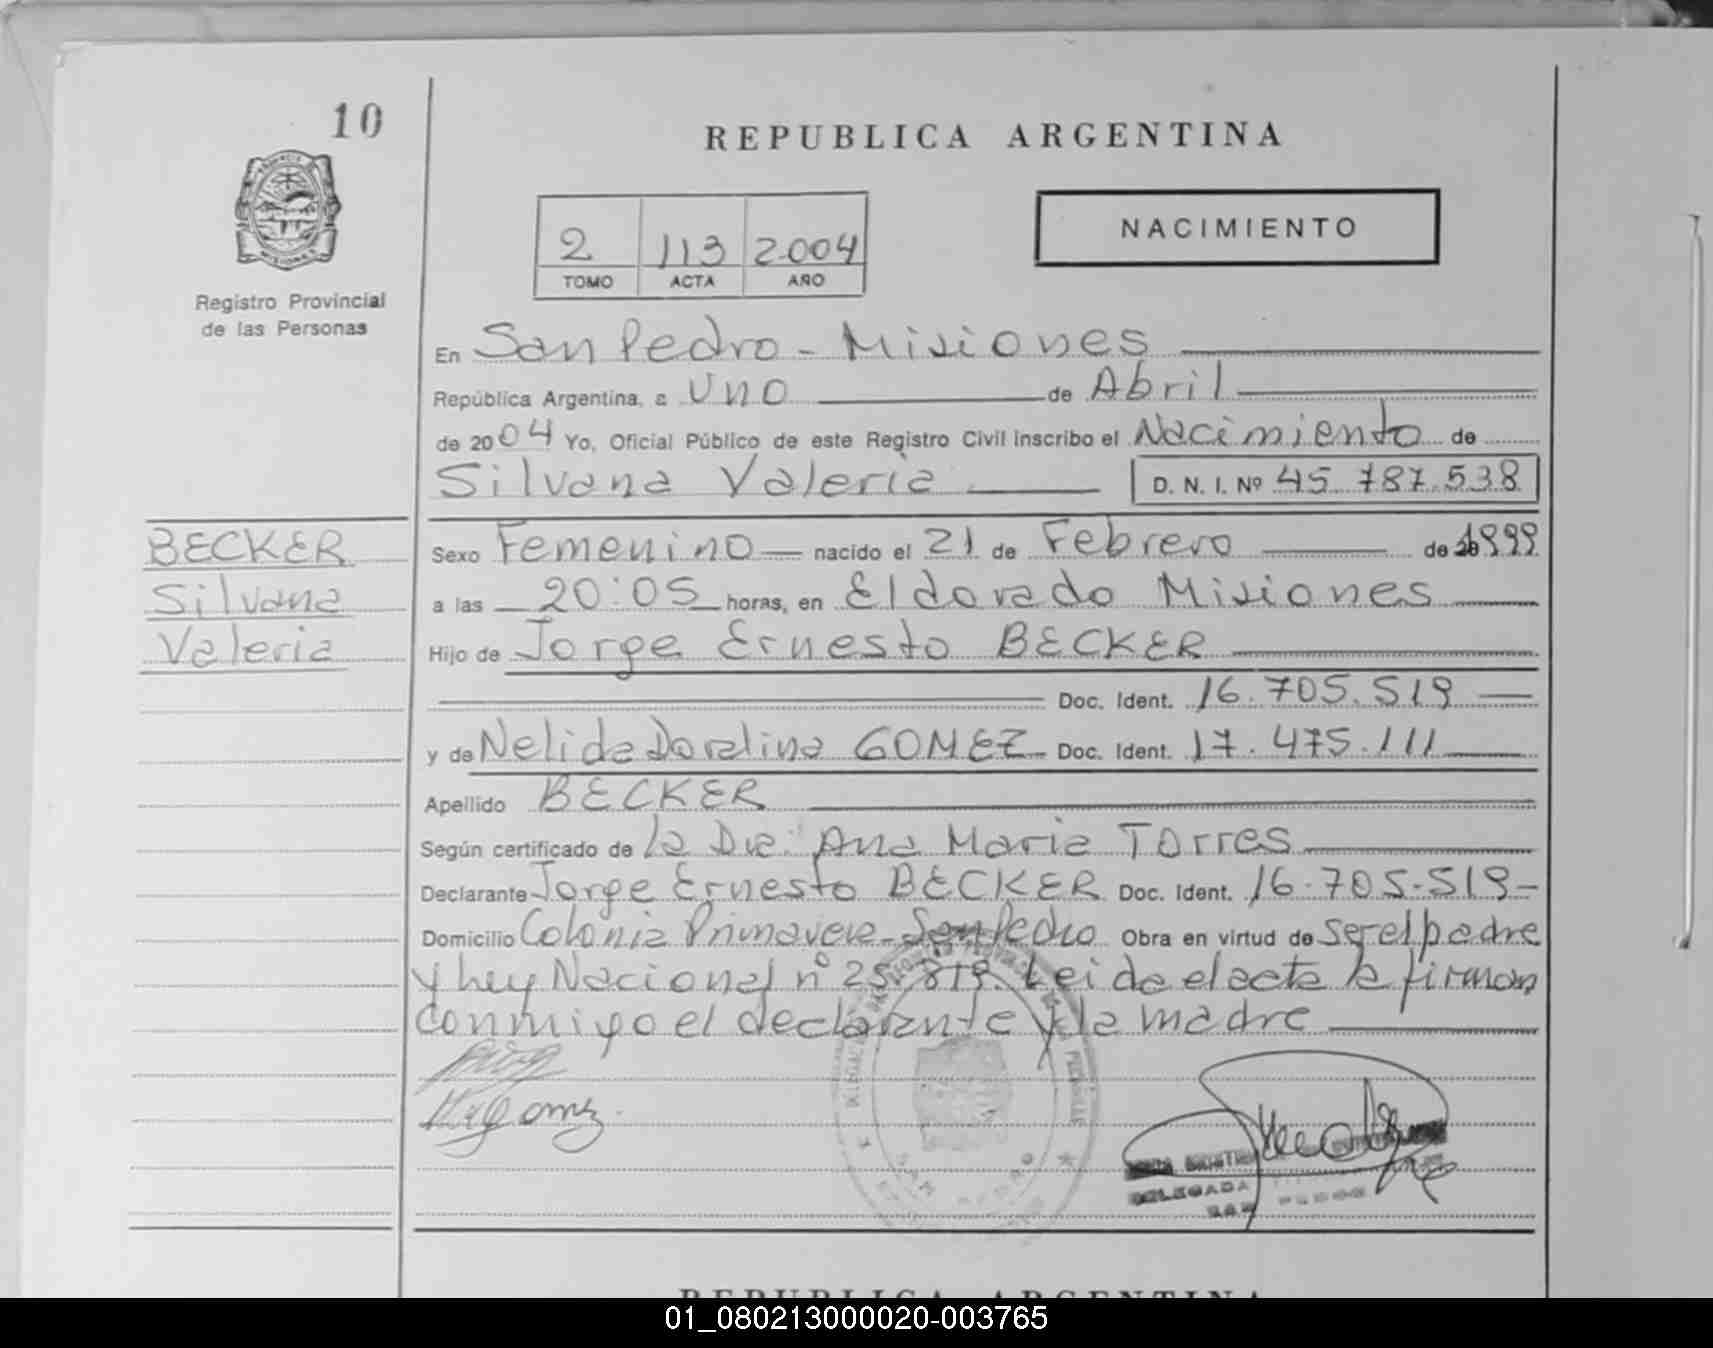 10
REPUBLICA ARGENTINA
2 113 2004
TOMO ACTA AÑO
NACIMIENTO
Registro Provincial
de las Personas
En San Pedro - Misiones
República Argentina, a Uno de Abril
de 2004 Yo, Oficial Público de este Registro Civil inscribo el Nacimiento de
Silvana Valeria D. N. I. Nº 45.787.538
BECKER
Silvana
Valeria
Sexo Femenino nacido el 21 de Febrero de 1999
a las 20:05 horas, en Eldorado Misiones
Hijo de Jorge Ernesto BECKER
Doc. Ident. 16.705.519
y de Nelida Doralina GOMEZ Doc. Ident. 17.475.111
Apellido BECKER
Según certificado de la Dra: Ana Maria TORRES
Declarante Jorge Ernesto BECKER Doc. Ident. 16.705.519
Domicilio Colonia Primavera - San Pedro Obra en virtud de ser el padre
y Ley Nacional nº 25.819. Leida el acta la firman
conmigo el declarante y la madre
Gomez
DELEGADA
SAN PEDRO
REPUBLICA ARGENTINA
01_080213000020-003765